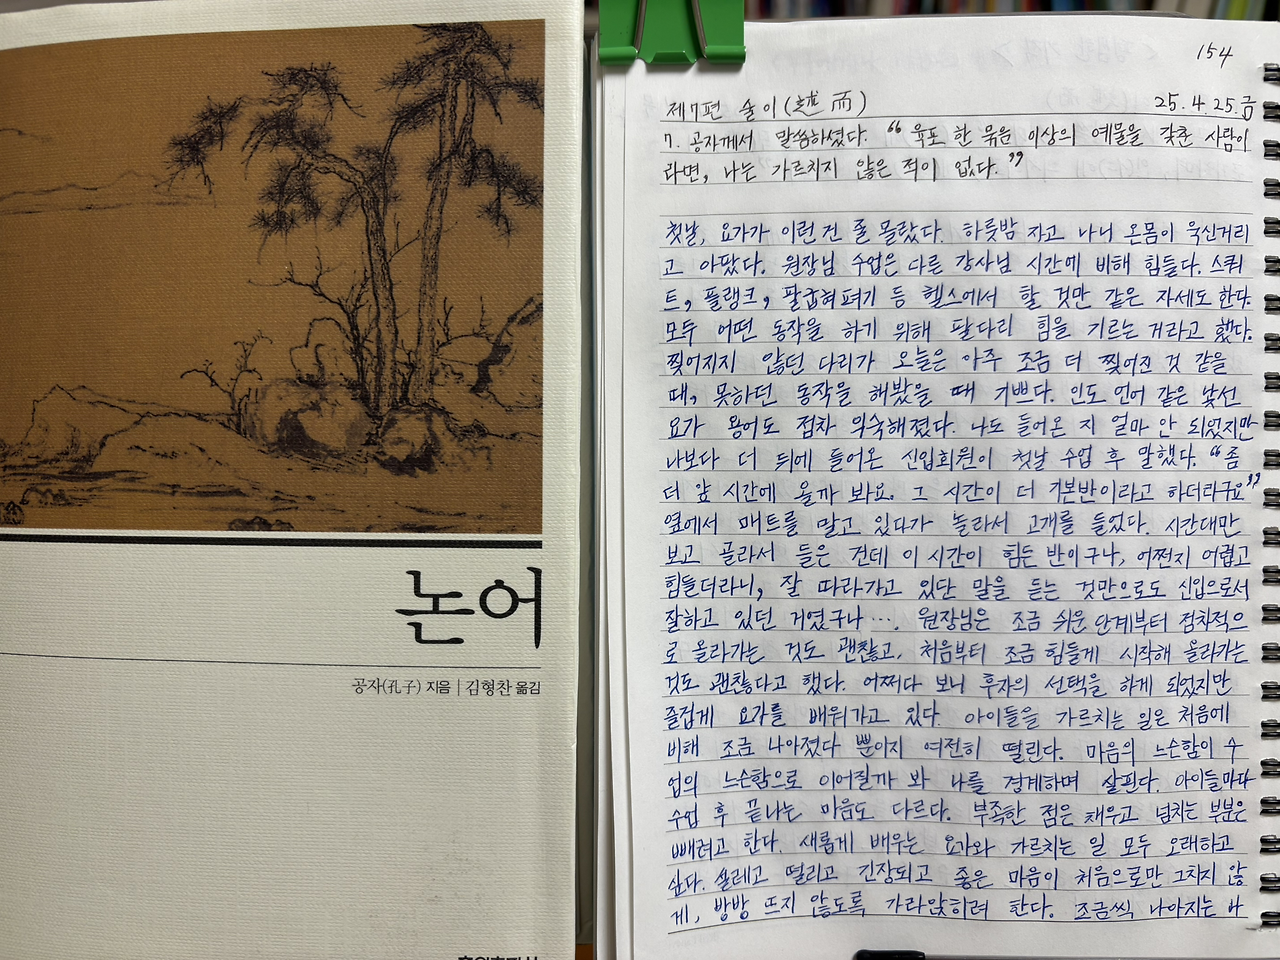 논어
공자(孔子) 지음 | 김형찬 옮김
154
제7편 술이(述而) 25.4.25.금
7. 공자께서 말씀하셨다. “육포 한 묶음 이상의 예물을 갖춘 사람이
라면, 나는 가르치지 않은 적이 없다.”
첫날, 요가가 이런 건 줄 몰랐다. 하룻밤 자고 나니 온몸이 욱신거리
고 아팠다. 원장님 수업은 다른 강사님 시간에 비해 힘들다. 스쿼
트, 플랭크, 팔굽혀펴기 등 헬스에서 할 것만 같은 자세도 한다.
모두 어떤 동작을 하기 위해 팔다리 힘을 기르는 거라고 했다.
찢어지지 않던 다리가 오늘은 아주 조금 더 찢어진 것 같을
때, 못하던 동작을 해봤을 때 기쁘다. 인도 언어 같은 낯선
요가 용어도 점차 익숙해졌다. 나도 들어온 지 얼마 안 되었지만
나보다 더 뒤에 들어온 신입회원이 첫날 수업 후 말했다. “좀
더 앞 시간에 올까 봐요. 그 시간이 더 기본반이라고 하더라구요”
옆에서 매트를 말고 있다가 놀라서 고개를 들었다. 시간대만
보고 골라서 들은 건데 이 시간이 힘든 반이구나, 어쩐지 어렵고
힘들더라니, 잘 따라가고 있단 말을 듣는 것만으로도 신입으로서
잘하고 있던 거였구나…. 원장님은 조금 쉬운 단계부터 점차적으
로 올라가는 것도 괜찮고, 처음부터 조금 힘들게 시작해 올라가는
것도 괜찮다고 했다. 어쩌다 보니 후자의 선택을 하게 되었지만
즐겁게 요가를 배워가고 있다. 아이들을 가르치는 일은 처음에
비해 조금 나아졌다 뿐이지 여전히 떨린다. 마음의 느슨함이 수
업의 느슨함으로 이어질까 봐 나를 경계하며 살핀다. 아이들마다
수업 후 끝나는 마음도 다르다. 부족한 점은 채우고 넘치는 부분은
빼려고 한다. 새롭게 배우는 요가와 가르치는 일 모두 오래하고
싶다. 설레고 떨리고 긴장되고 좋은 마음이 처음으로만 그치지 않
게, 방방 뜨지 않도록 가라앉히려 한다. 조금씩 나아지는 나